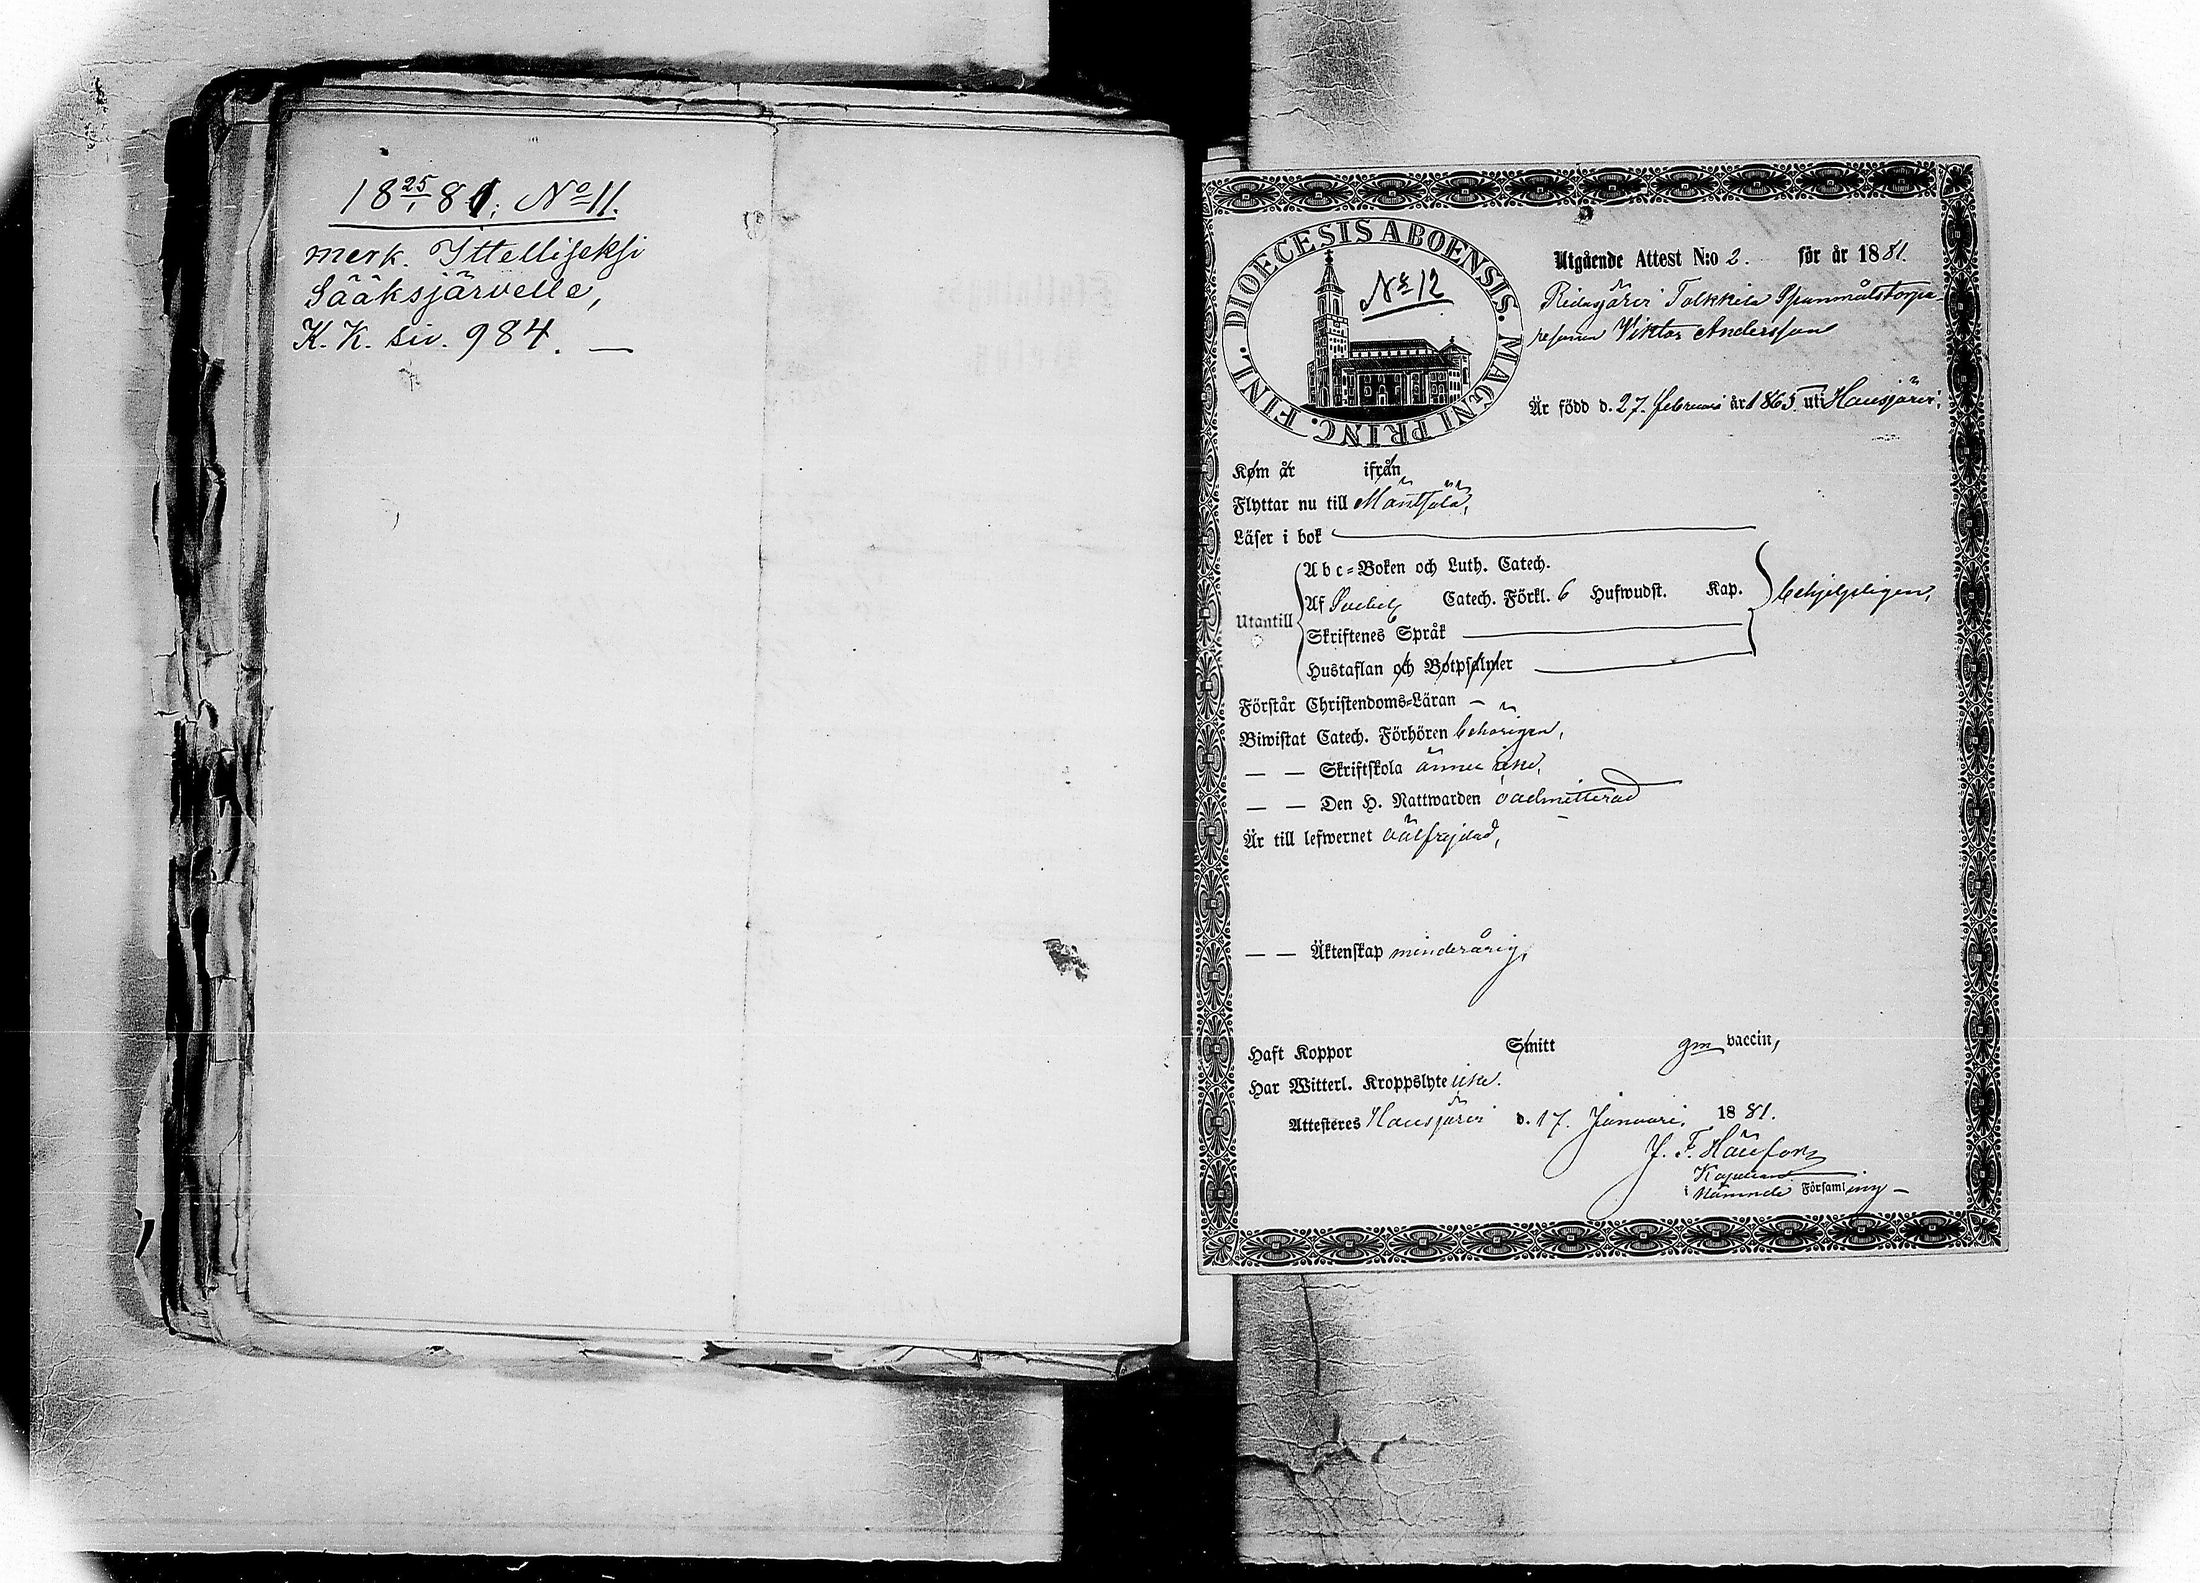 18 25/1 81; No 11.
merk. Ittellijeksi
Sääksjärvelle,
K. K. siv. 984. —
DIOECESIS ABOENSIS. MAGNI PRINC. FINL.
No 12
Utgående Attest N:o 2. för år 1881.
Ridasjärvi Tolkkila Spanmålstorpa-
resonen Viktor Andersson
Är född d. 27. februari år 1865 uti Hausjärvi;
Kom år ifrån
Flyttar nu till Mäntsälä,
Läser i bok
Utantill
Abc-Boken och Luth. Catech.
Af Svebely Catech. Förkl. 6 Hufwudst. Kap.
behjelpligen,
Skriftenes Språk
Hustaflan och Botpsalmer
Förstår Christendoms-Läran —
Biwistat Catech. Förhören behörigen,
— — Skriftskola ännu icke,
— — Den H. Nattwarden oadmitterad
Är till lefwernet välfrejdad,
— — Äktenskap minderårig,
Haft Koppor Smitt gm vaccin,
Har Witterl. Kroppslyte icke.
Attesteres Hausjärvi d. 17. Januari 1881.
J. F. Häufors
Kapellan
i nämnde Församling —